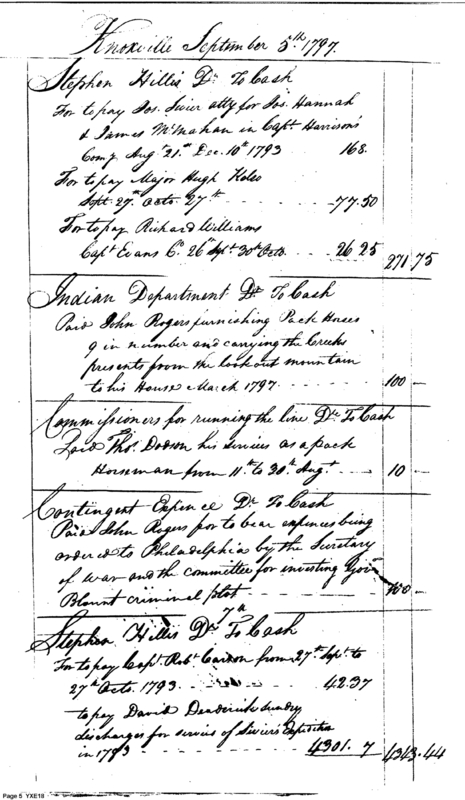 Knoxville September 5th 1797.
Stephen Hillis Dr To Cash
For to pay Jos. Sevier atty for Jos. Hannah
& James McMahan in Capt. Harrison's
Comy Augt 21st Dec. 10th 1793 168.
For to pay Major Hugh
Sept. 27th Octo. 27th - - - - - 77.50
For to pay Richard Williams
Capt Evans Co. 26th Sept. 30th Octo. 26 25
271 75
Indian Department Dr To Cash
Paid John Rogers furnishing Pack Horses
9 in number and carrying the Creeks
presents from the look out mountain
to his House March 1797. - - - - - 100 -
Commissioners for running the line Dr To Cash
Paid Thos. Dodson his services as a pack
Horseman from 11th to 30th Augt - - 10 -
Contingent Expence Dr To Cash
Paid John Rogers for to bear expences being
ordered to Philadelphia by the Secretary
of War and the committee for investing Gov
Blount criminal plot - - - - 100 -
7th
Stephen Hillis Dr To Cash
For to pay Capt Robt Carson from 27th Sept. to
27th Octo. 1793 - - - - - 42.37
to pay David Deaderick sundry
discharges for servies of Seviers
in 1793 - - - - - 4301. 7 4343.44
Page 5 YXE18